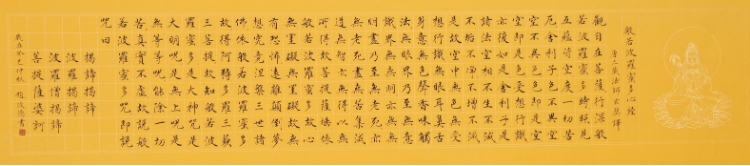 般若波羅蜜多心經
唐三藏法師玄奘譯
觀自在菩薩行深般
若波羅蜜多時照見
五蘊皆空度一切苦
厄舍利子色不異空
空不異色色即是空
空即是色受想行識
亦復如是舍利子是
諸法空相不生不滅
不垢不淨不增不減
是故空中無色無受
想行識無眼耳鼻舌
身意無色聲香味觸
法無眼界乃至無意
識界無無明亦無無
明盡乃至無老死亦
無老死盡無苦集滅
道無智亦無得以無
所得故菩提薩埵依
般若波羅蜜多故心
無罣礙無罣礙故無
有恐怖遠離顛倒夢
想究竟涅槃三世諸
佛依般若波羅蜜多
故得阿耨多羅三藐
三菩提故知般若波
羅蜜多是大神咒是
大明咒是無上咒是
無等等咒能除一切
苦真實不虛故說般
若波羅蜜多咒即說
咒曰
揭諦揭諦
波羅揭諦
波羅僧揭諦
菩提薩婆訶
歲在癸巳仲秋